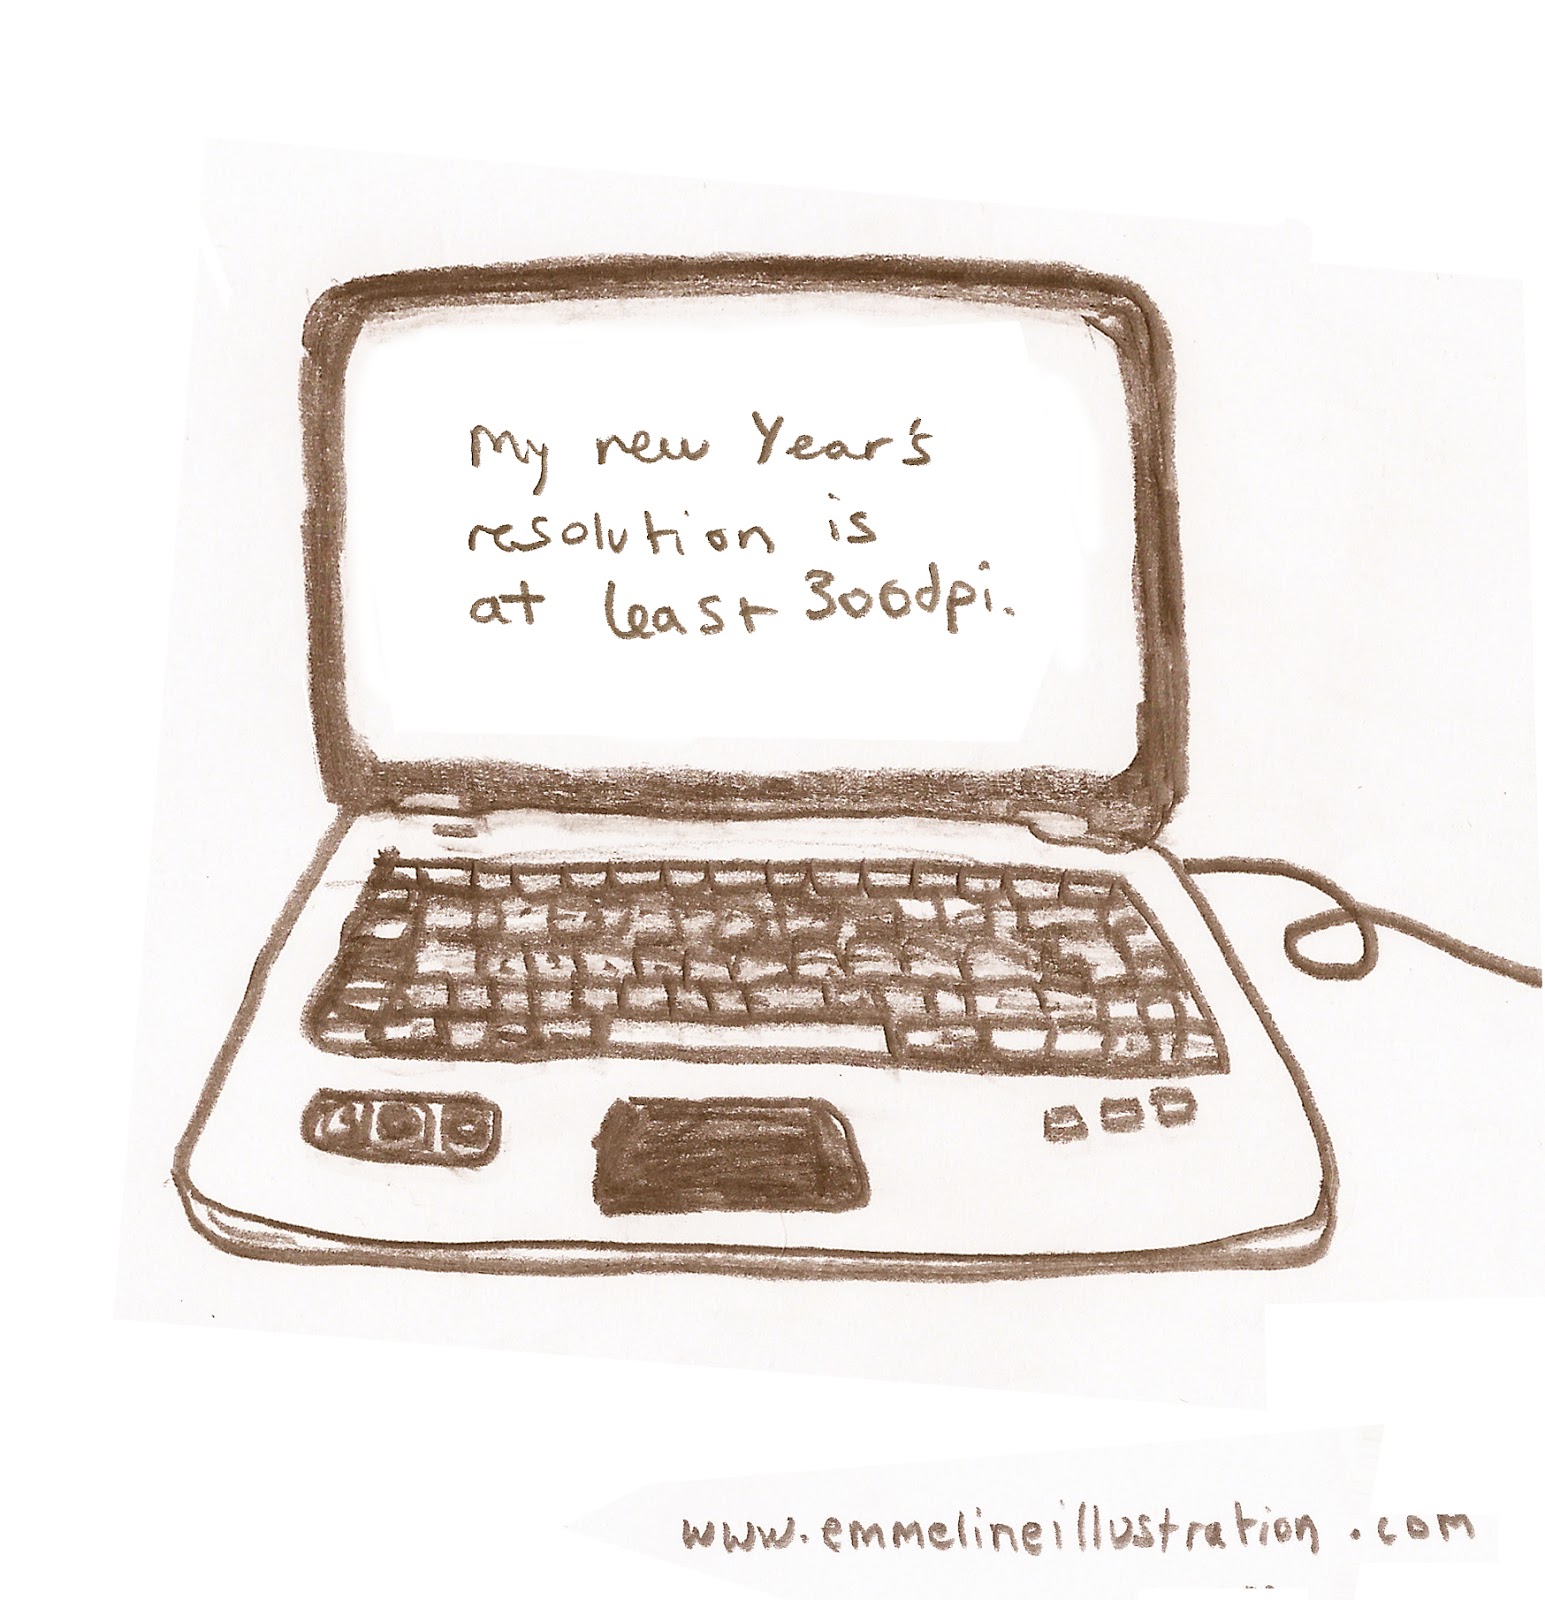 My new Year's
resolution is
at least 300dpi.
www.emmelineillustration.com